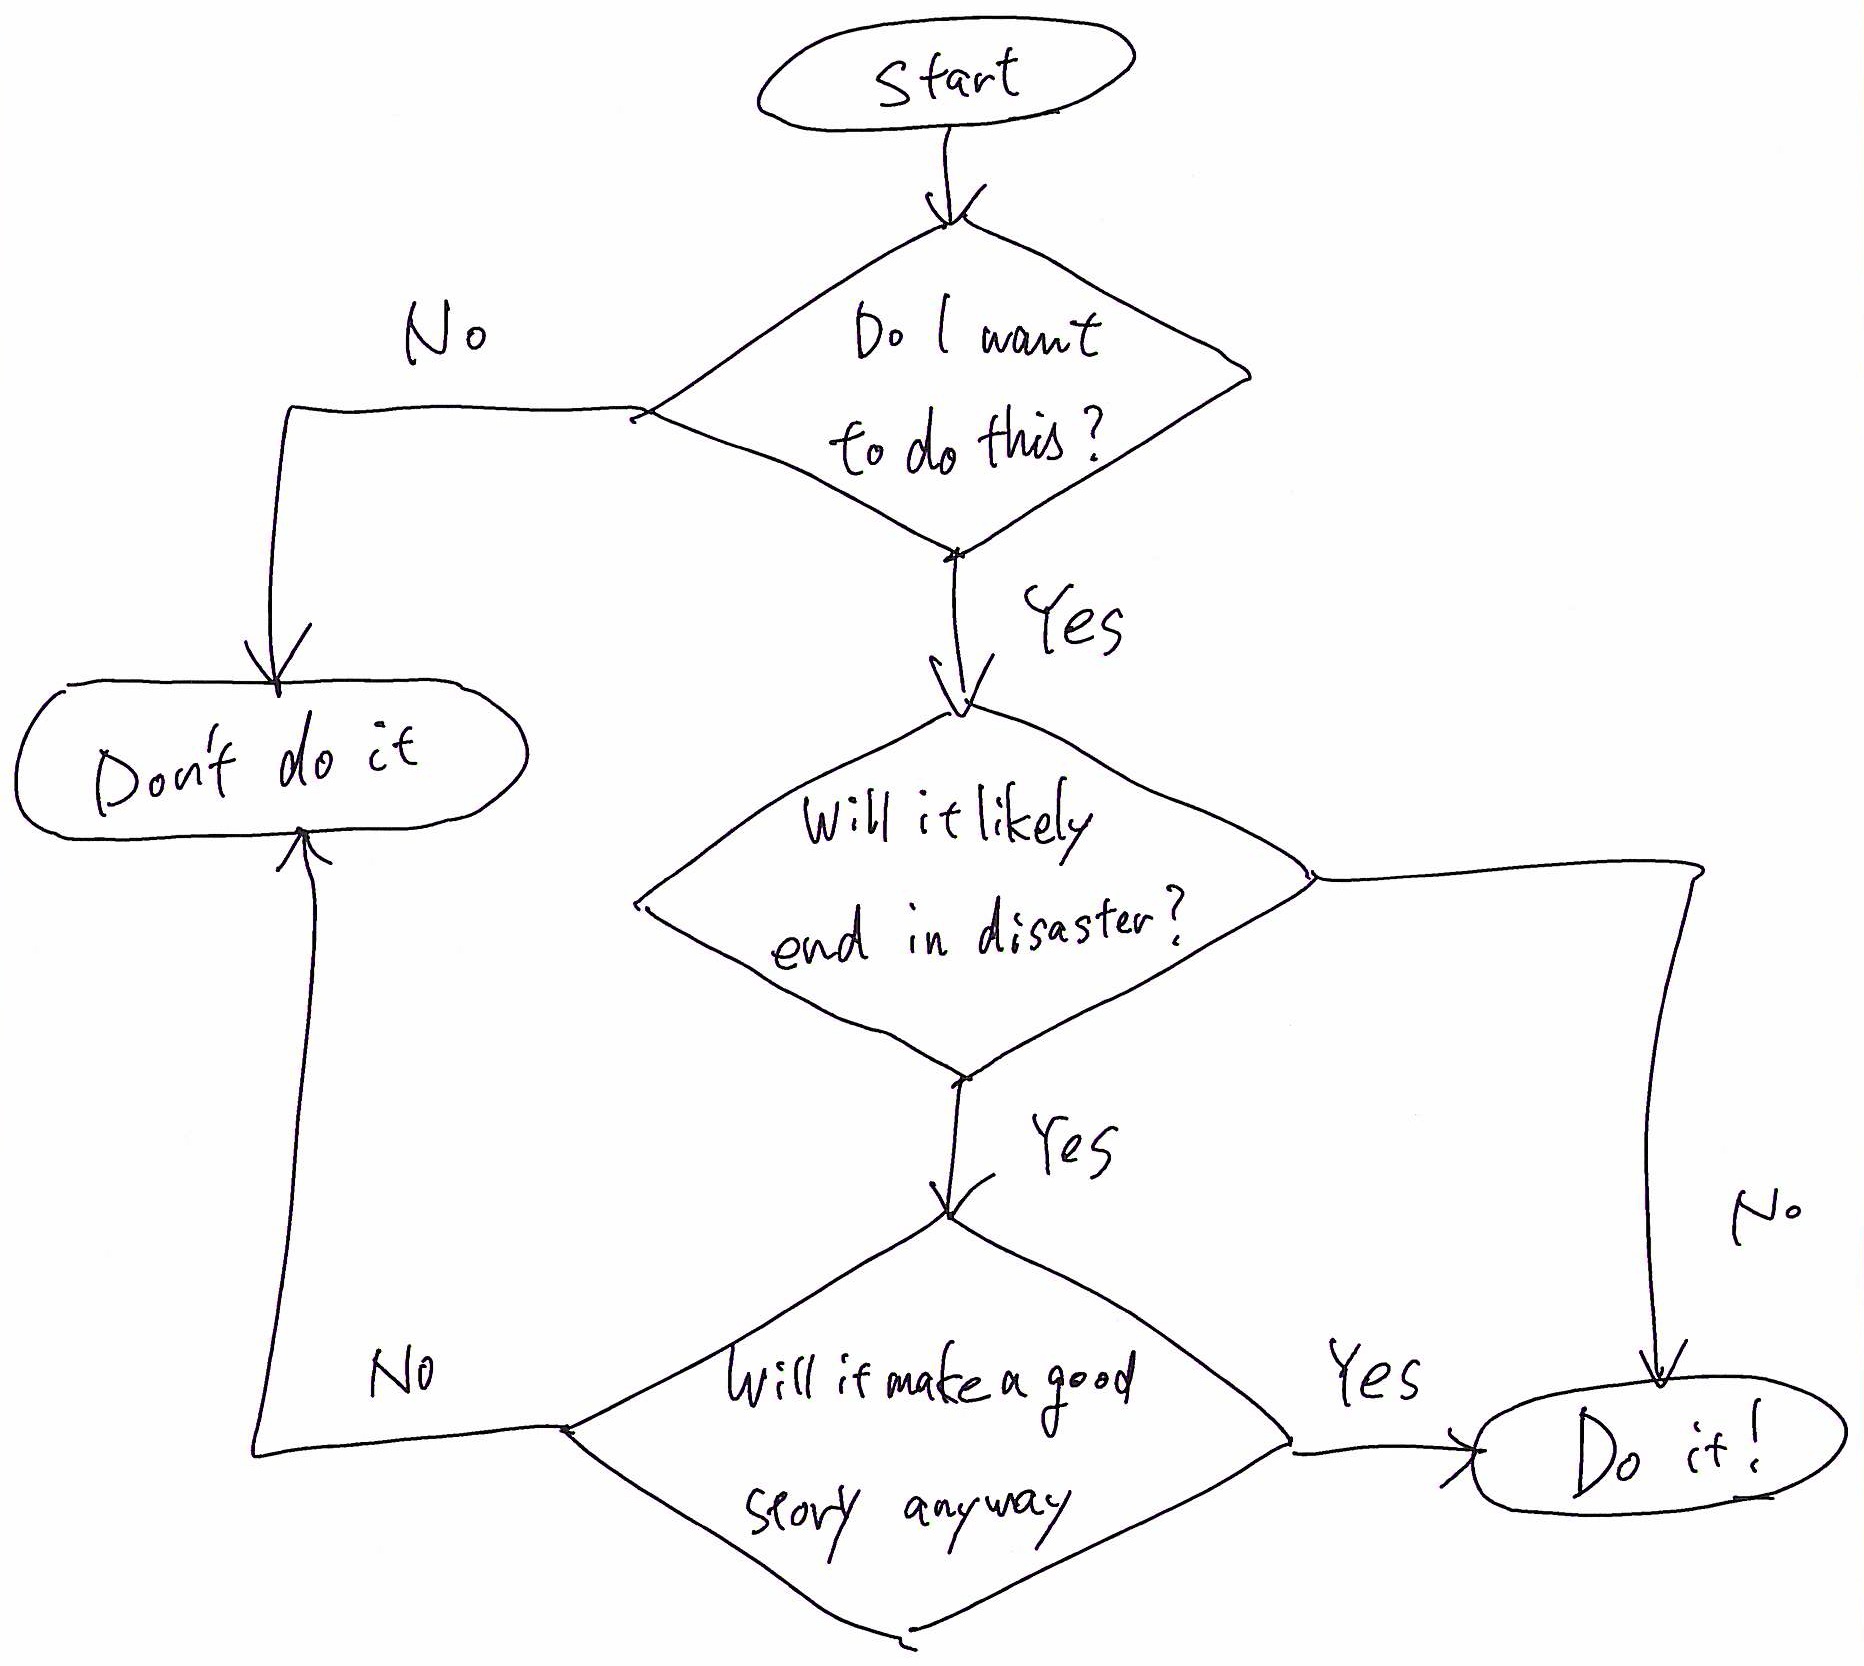 Start
No
Do I want
to do this?
Yes
Don't do it
Will it likely
end in disaster?
Yes
No
No
Will it make a good
story anyway
Yes
Do it!